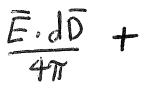 \frac{\bar{E} \cdot d\bar{D}}{4\pi} +